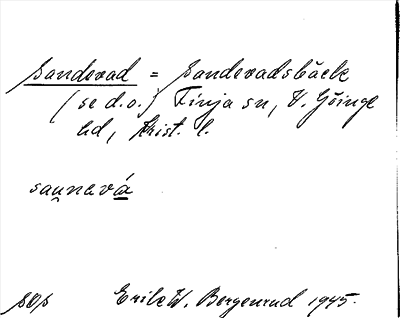 Sandevad = Sandevadsbäck
(se d.o.) Finja sn, V. Göinge
hd, Krist. l.
saṷnevá
sop Erik W. Bergenrud 1945.